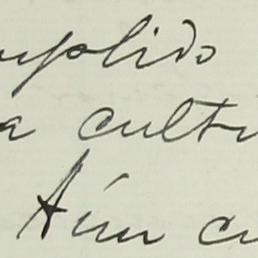 mplido
a cultu
Aún cu